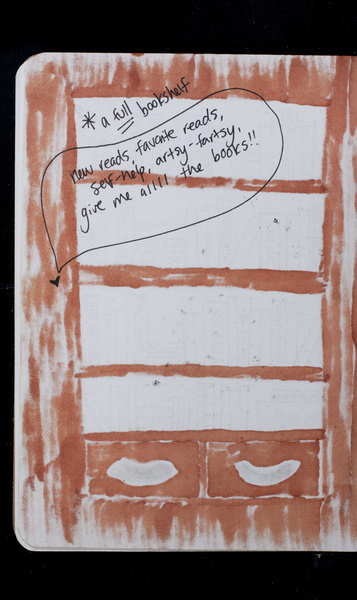 * a full bookshelf
new reads, favorite reads,
self-help, artsy-fartsy,
give me alllll the books!!